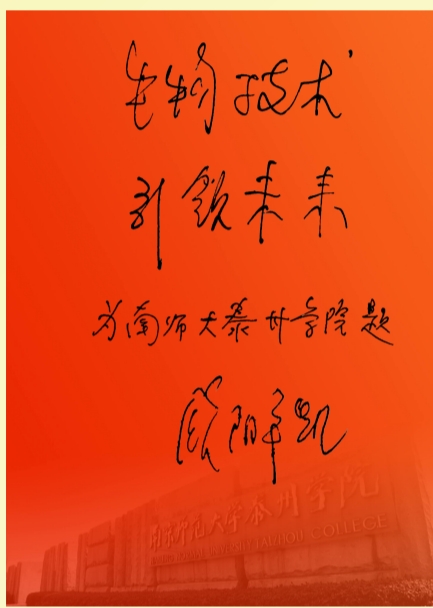 生物技术
引领未来
为南师大泰州学院题
欧阳平凯
南京师范大学泰州学院
NANJING NORMAL UNIVERSITY TAIZHOU COLLEGE